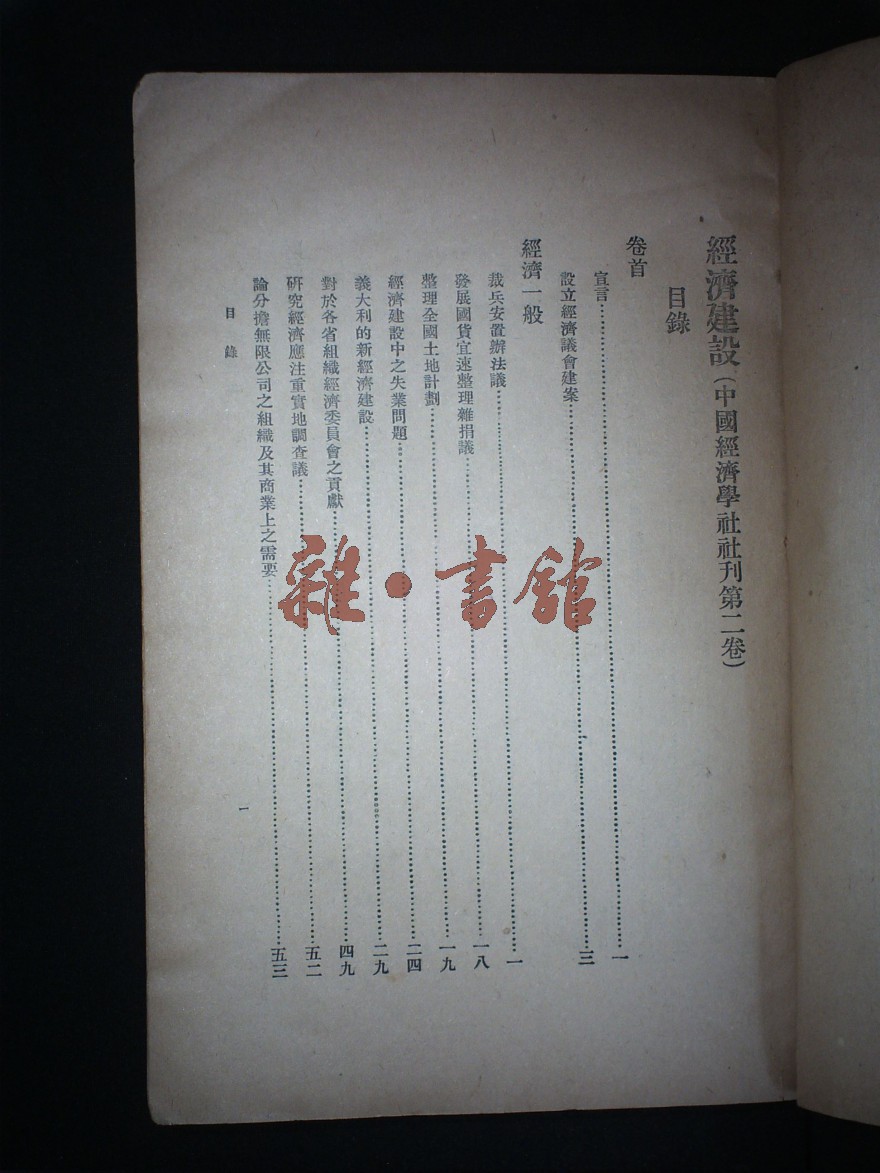 經濟建設(中國經濟學社社刊第二卷)
目錄
卷首
宣言 一
設立經濟議會建案 三
經濟一般
裁兵安置辦法議 一
發展國貨宜速整理雜捐議 一八
整理全國土地計劃 一九
經濟建設中之失業問題 二四
義大利的新經濟建設 二九
對於各省組織經濟委員會之貢獻 四九
研究經濟應注重實地調查議 五二
論分擔無限公司之組織及其商業上之需要 五三
目錄
一
雜·書館